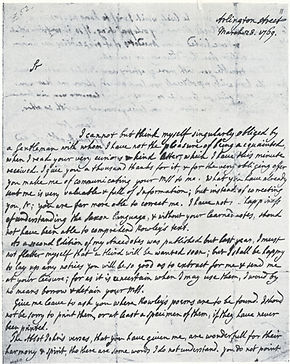 Arlington Street
March 28. 1769.
Sr
I cannot but think myself singularly obliged by
a Gentleman with whom I have not the pleasure of being acquainted,
when I read your very curious & kind letter, which I have this minute
received. I give you a thousand thanks for it, & for the very obliging offer
you make me of communicating your MSS to me. What you have already
sent me is very valuable & full of Information; but instead of correcting
you, Sr, you are far more able to correct me. I have not the happiness
of understanding the Saxon language, & without your learned notes, should
not have been able to comprehend Rowley's text.
As a second Edition of my Anecdotes was published but last year, I must
not flatter myself that a third will be wanted soon; but I shall be happy
to lay up any notices you will be so good as to extract for me, & send me
at your leisure; for as it is uncertain when I may use them, I would by
no means borrow & detain your MSS.
Give me leave to ask you where Rowley's poems are to be found. I shoud
not be sorry to print them, or at least a specimen of them, if they have never
been printed.
The Abbot John's verses, that you have given me, are wonderfull for their
harmony & spirit, tho there are some words I do not understand. You do not point